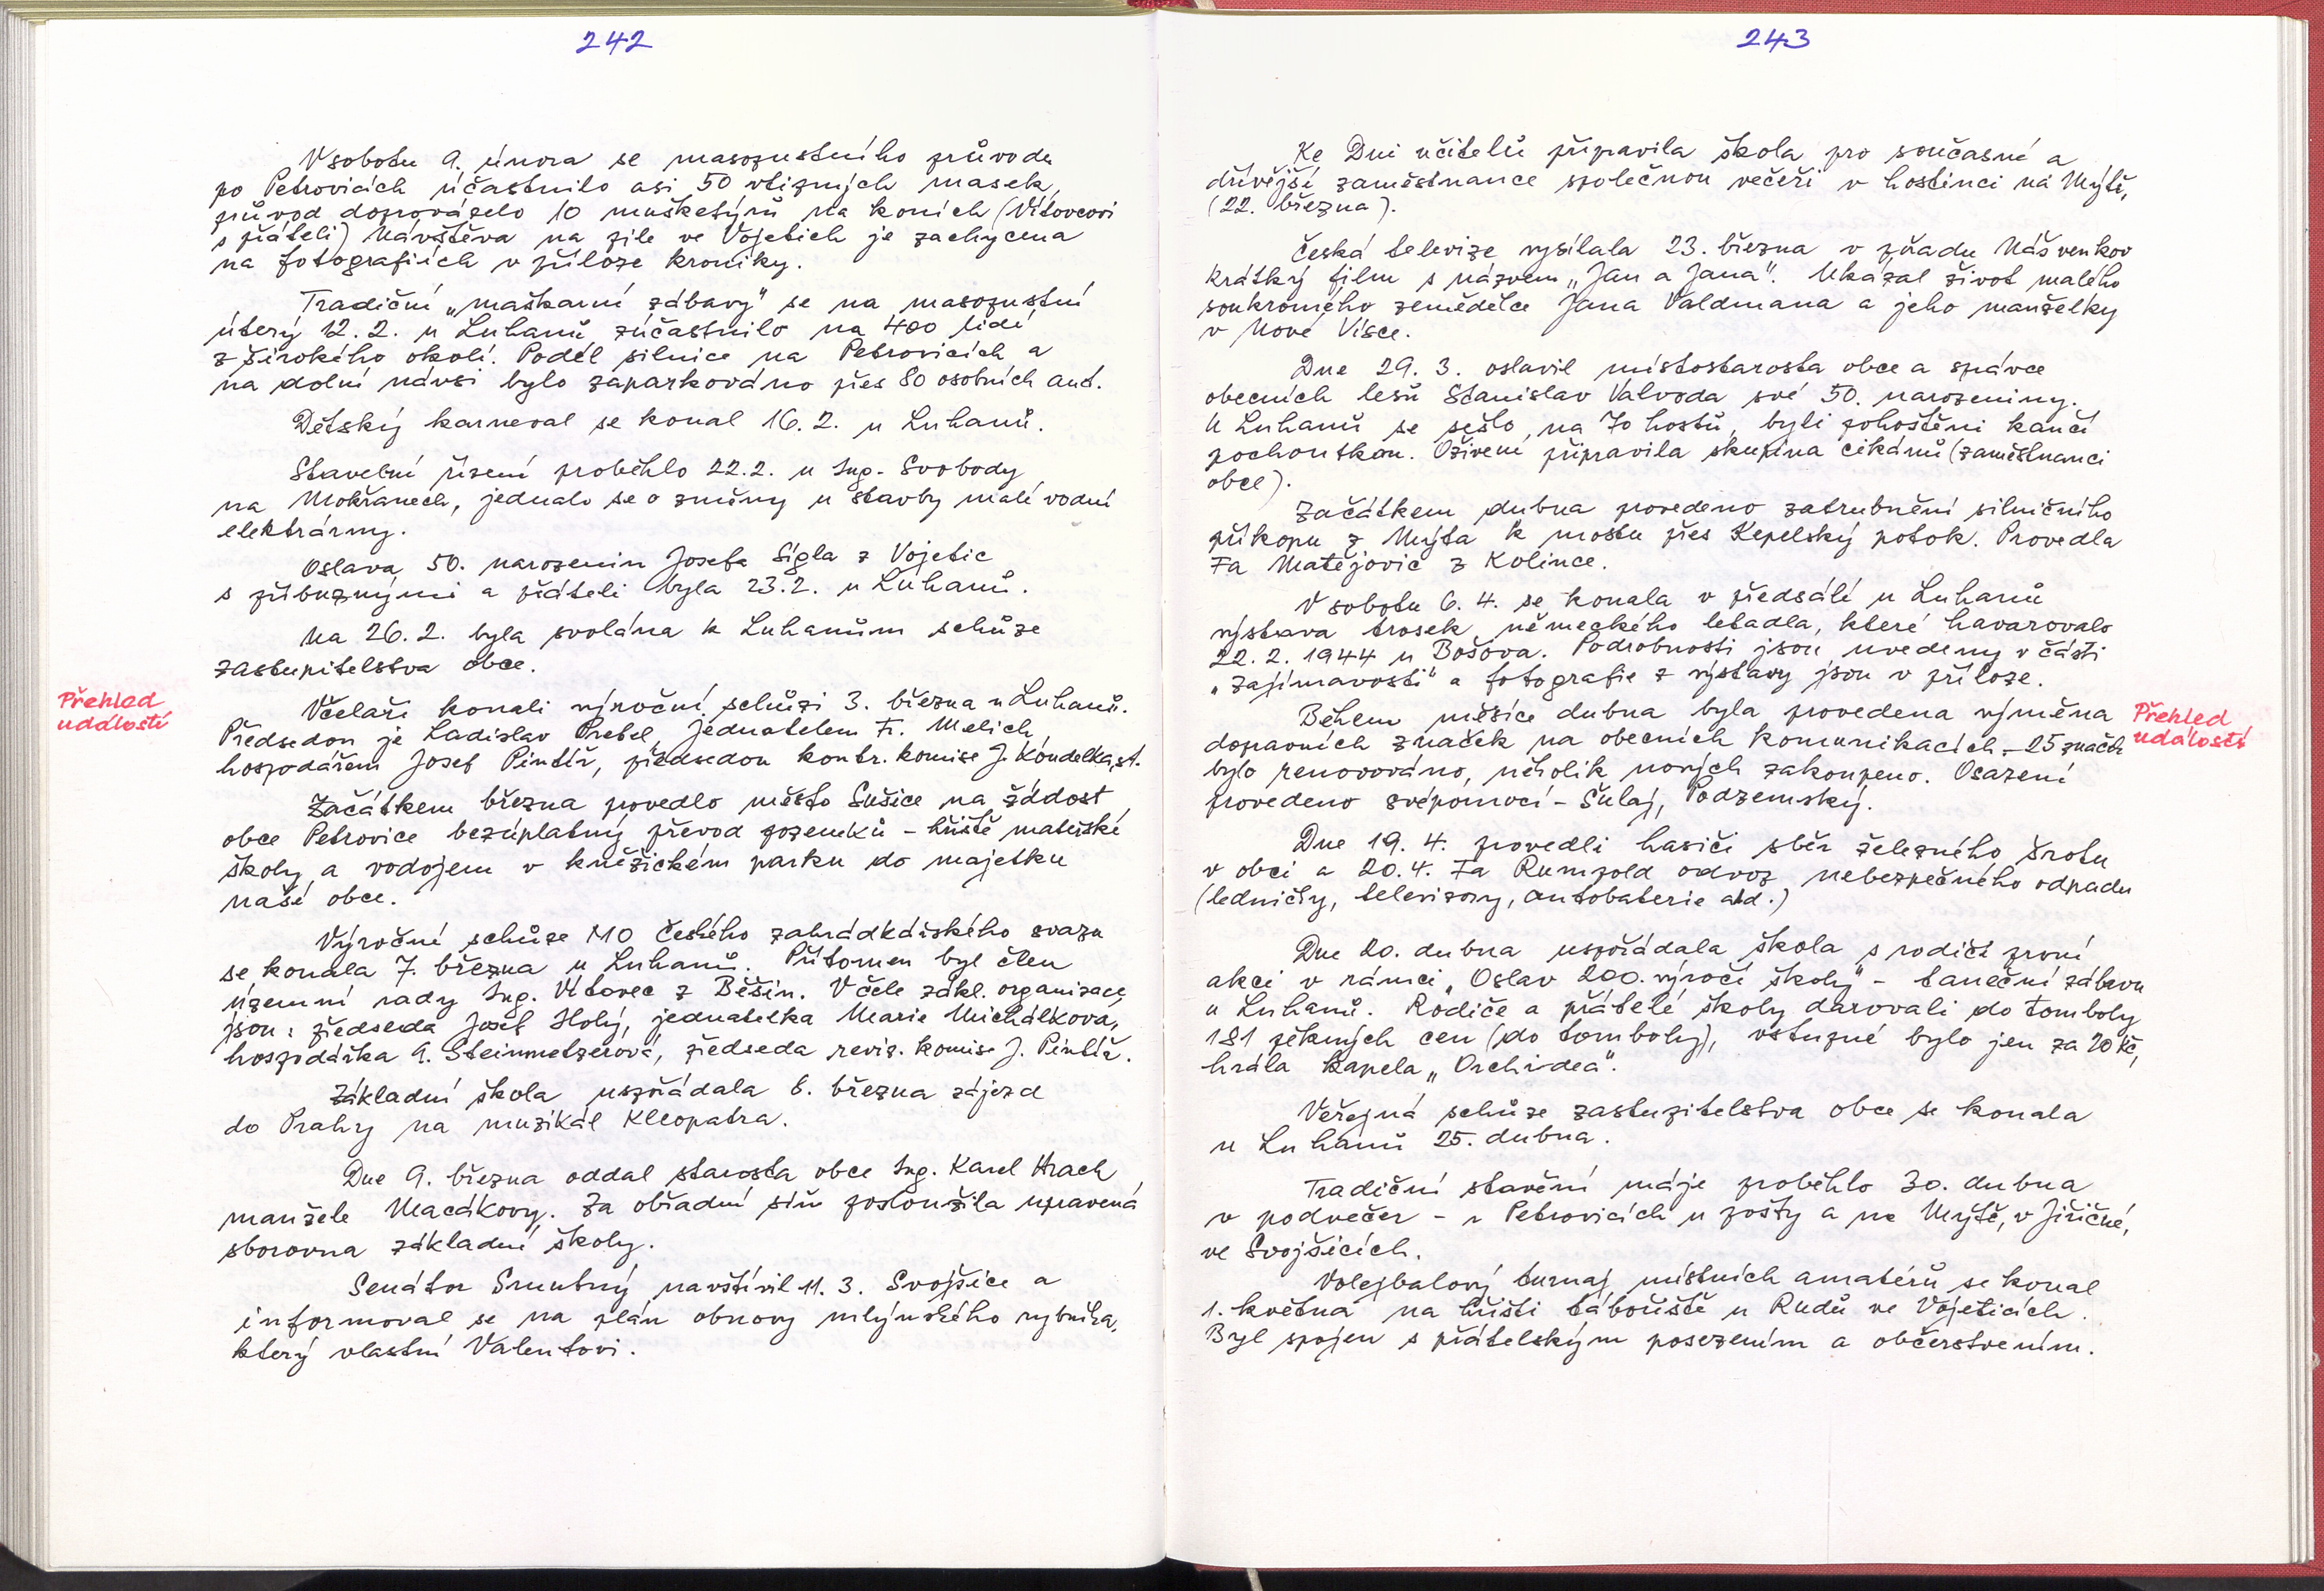 242
V sobotu 9. února se masopustního průvodu
po Petrovicích účastnilo asi 50 vtipných masek,
průvod doprovázelo 10 mušketýrů na koních (Vítovcovi
s přáteli) Návštěva na pile ve Vojetich je zachycena
na fotografiích v příloze kroniky.
Tradiční „maškarní zábavy" se na masopustní
úterý 12. 2. u Luhanů zúčastnilo na 400 lidí
z širokého okolí. Podél silnice na Petrovicích a
na dolní návsi bylo zaparkováno přes 80 osobních aut.
Dětský karneval se konal 16. 2. u Luhanů.
Stavební řízení proběhlo 22.2. u Ing. Svobody
na Mokřanech, jednalo se o změny u stavby malé vodní
elektrárny.
Oslava 50. narozenin Josefa Sígla z Vojetic
s příbuznými a přáteli byla 23.2. u Luhanů.
Na 26. 2. byla svolána k Luhanům schůze
zastupitelstva obce.
Přehled
událostí
Včelaři konali výroční schůzi 3. března u Luhanů.
Předsedou je Ladislav Prebel, jednatelem Fr. Melich,
hospodářem Josef Pintíř, předsedou kontr. komise J. Koudelka,st.
Začátkem března povedlo město Sušice na žádost
obce Petrovice bezúplatný převod pozemků – hřiště mateřské
školy a vodojem v kněžickém parku do majetku
naší obce.
Výroční schůze MO Českého zahrádkářského svazu
se konala 7. března u Luhanů. Přítomen byl člen
územní rady Ing. Vítovec z Běšin. V čele zákl. organizace
jsou: předseda Josef Holý, jednatelka Marie Michálková,
hospodářka A. Steinmetzerová, předseda reviz. komise J. Pintíř.
Základní škola uspořádala 6. března zájezd
do Prahy na muzikál Kleopatra.
Dne 9. března oddal starosta obce Ing. Karel Hrach
manžele Macákovy. Za obřadní síň posloužila upravená
sborovna základní školy.
Senátor Smutný navštívil 11. 3. Svojšice a
informoval se na plán obnovy mlýnského rybníka,
který vlastní Valentovi.
243
Ke Dni učitelů připravila škola pro současné a
dřívější zaměstnance společnou večeři v hostinci na Mýtě,
(22. března).
Česká televize vysílala 23. března v pořadu Náš venkov
krátký film s názvem „Jan a Jana". Ukázal život malého
soukromého zemědělce Jana Valdmana a jeho manželky
v Nové Vísce.
Dne 29. 3. oslavil místostarosta obce a správce
obecních lesů Stanislav Valvoda své 50. narozeniny.
U Luhanů se sešlo na 70 hostů, byli pohoštěni kančí
pochoutkou. Oživení připravila skupina cikánů (zaměstnanci
obce).
Začátkem dubna provedeno zatrubnění silničního
příkopu z Mýta k mostu přes Kepelský potok. Provedla
Fa Matějovič z Kolince.
V sobotu 6. 4. se konala v předsálí u Luhanů
výstava trosek německého letadla, které havarovalo
22. 2. 1944 u Bošova. Podrobnosti jsou uvedeny v části
„Zajímavosti" a fotografie z výstavy jsou v příloze.
Během měsíce dubna byla provedena výměna
dopravních značek na obecních komunikacích – 25 značek
bylo renovováno, několik nových zakoupeno. Osazení
provedeno svépomocí – Šulaj, Podzemský.
Přehled
událostí
Dne 19. 4. provedli hasiči sběr železného šrotu
v obci a 20.4. Fa Rumpold odvoz nebezpečného odpadu
(ledničky, televizory, autobaterie atd.)
Dne 20. dubna uspořádala škola s rodiči první
akci v rámci „Oslav 200. výročí školy" – taneční zábavu
u Luhanů. Rodiče a přátelé školy darovali do tomboly
181 pěkných cen (do tomboly), vstupné bylo jen za 20 Kč,
hrála kapela „Orchidea".
Veřejná schůze zastupitelstva obce se konala
u Luhanů 25. dubna.
Tradiční stavění máje proběhlo 30. dubna
v podvečer – v Petrovicích u pošty a na Mýtě, v Jiřičné,
ve Svojšicích.
Volejbalový turnaj místních amatérů se konal
1. května na hřišti tábořiště u Rudů ve Vojeticích.
Byl spojen s přátelským posezením a občerstvením.